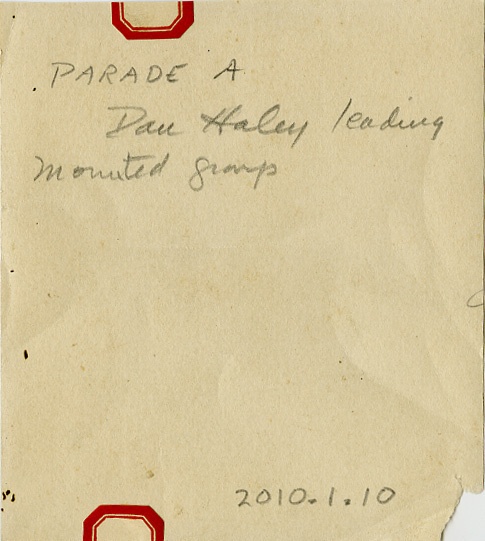 PARADE A
Dan Haley leading
Mounted group
2010.1.10